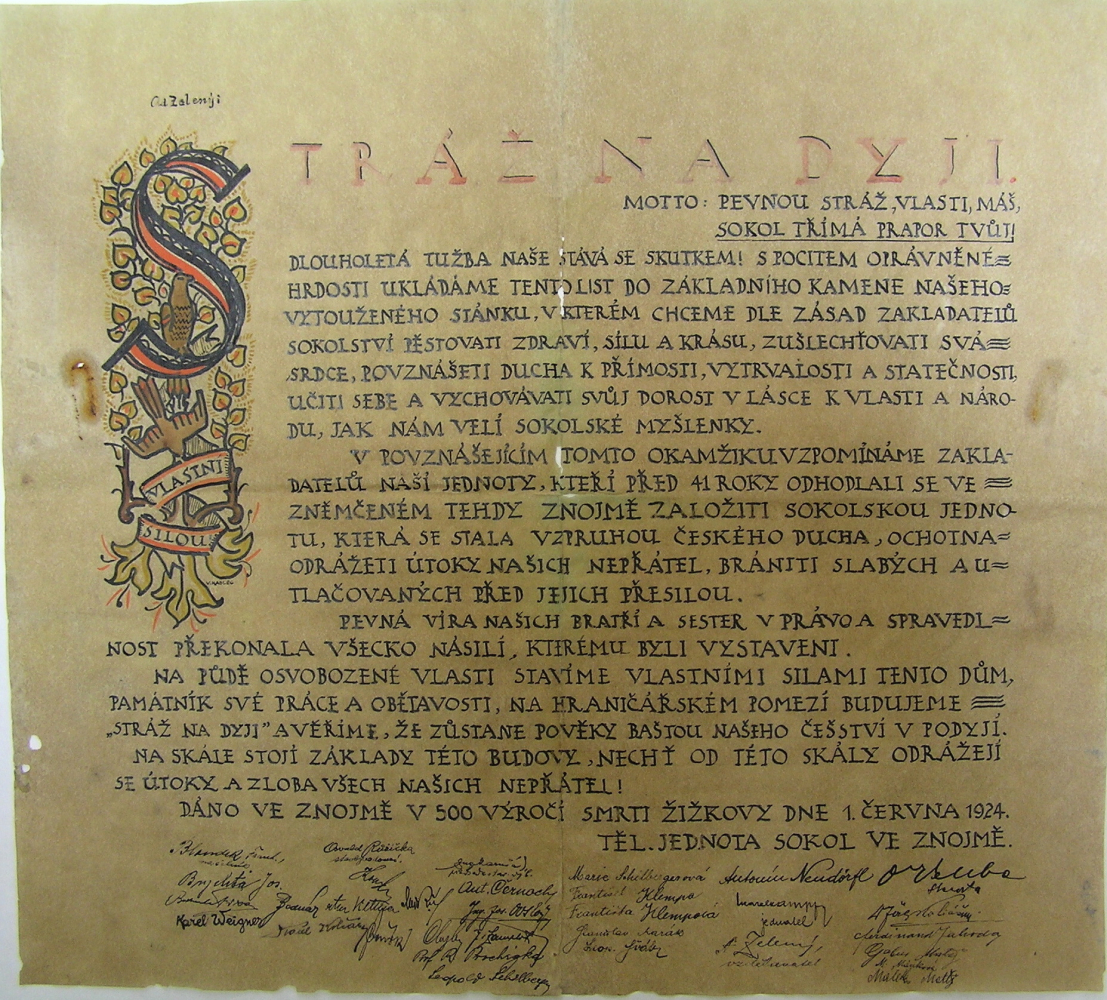 Ad. Zelený:
STRÁŽ NA DYJI.
MOTTO: PEVNOU STRÁŽ, VLASTI, MÁŠ,
SOKOL TŘÍMÁ PRAPOR TVŮJ!
DLOUHOLETÁ TUŽBA NAŠE STÁVÁ SE SKUTKEM! S POCITEM OPRÁVNĚNÉ
HRDOSTI UKLÁDÁME TENTO LIST DO ZÁKLADNÍHO KAMENE NAŠEHO
VYTOUŽENÉHO STÁNKU, V KTERÉM CHCEME DLE ZÁSAD ZAKLADATELŮ
SOKOLSTVÍ PĚSTOVATI ZDRAVÍ, SÍLU A KRÁSU, ZUŠLECHŤOVATI SVÁ
SRDCE, POVZNÁŠETI DUCHA K PŘÍMOSTI, VYTRVALOSTI A STATEČNOSTI,
UČITI SEBE A VYCHOVÁVATI SVŮJ DOROST V LÁSCE K VLASTI A NÁRO-
DU, JAK NÁM VELÍ SOKOLSKÉ MYŠLENKY.
V POVZNÁŠEJÍCÍM TOMTO OKAMŽIKU VZPOMÍNÁME ZAKLA-
DATELŮ NAŠÍ JEDNOTY, KTEŘÍ PŘED 41 ROKY ODHODLALI SE VE
ZNĚMČENÉM TEHDY ZNOJMĚ ZALOŽITI SOKOLSKOU JEDNO-
TU, KTERÁ SE STALA VZPRUHOU ČESKÉHO DUCHA, OCHOTNA
ODRÁŽETI ÚTOKY NAŠICH NEPŘÁTEL, BRÁNITI SLABÝCH A U=
TLAČOVANÝCH PŘED JEJICH PŘESILOU.
PEVNÁ VÍRA NAŠICH BRATŘÍ A SESTER V PRÁVO A SPRAVEDL=
NOST PŘEKONALA VŠECKO NÁSILÍ, KTERÉMU BYLI VYSTAVENI.
NA PŮDĚ OSVOBOZENÉ VLASTI STAVÍME VLASTNÍMI SILAMI TENTO DŮM,
PAMÁTNÍK SVÉ PRÁCE A OBĚTAVOSTI, NA HRANIČÁŘSKÉM POMEZÍ BUDUJEME
„STRÁŽ NA DYJI" A VĚŘÍME, ŽE ZŮSTANE POVĚKY BAŠTOU NAŠEHO ČEŠSTVÍ V PODYJÍ.
NA SKÁLE STOJÍ ZÁKLADY TÉTO BUDOVY, NECHŤ OD TÉTO SKÁLY ODRÁŽEJÍ
SE ÚTOKY A ZLOBA VŠECH NAŠICH NEPŘÁTEL!
DÁNO VE ZNOJMĚ V 500 VÝROČÍ SMRTI ŽIŽKOVY DNE 1. ČERVNA 1924.
TĚL. JEDNOTA SOKOL VE ZNOJMĚ.
VLASTNÍ
SILOU
Osvald Růžička
Ant. Černoch
Karel Weigner
Leopold Schilberger
Marie Schilbergerová
František Klempa
Františka Klempová
Stanislav Marák
Antonín Neudörfl
jednatel
A. Zelený,
vzdělavatel